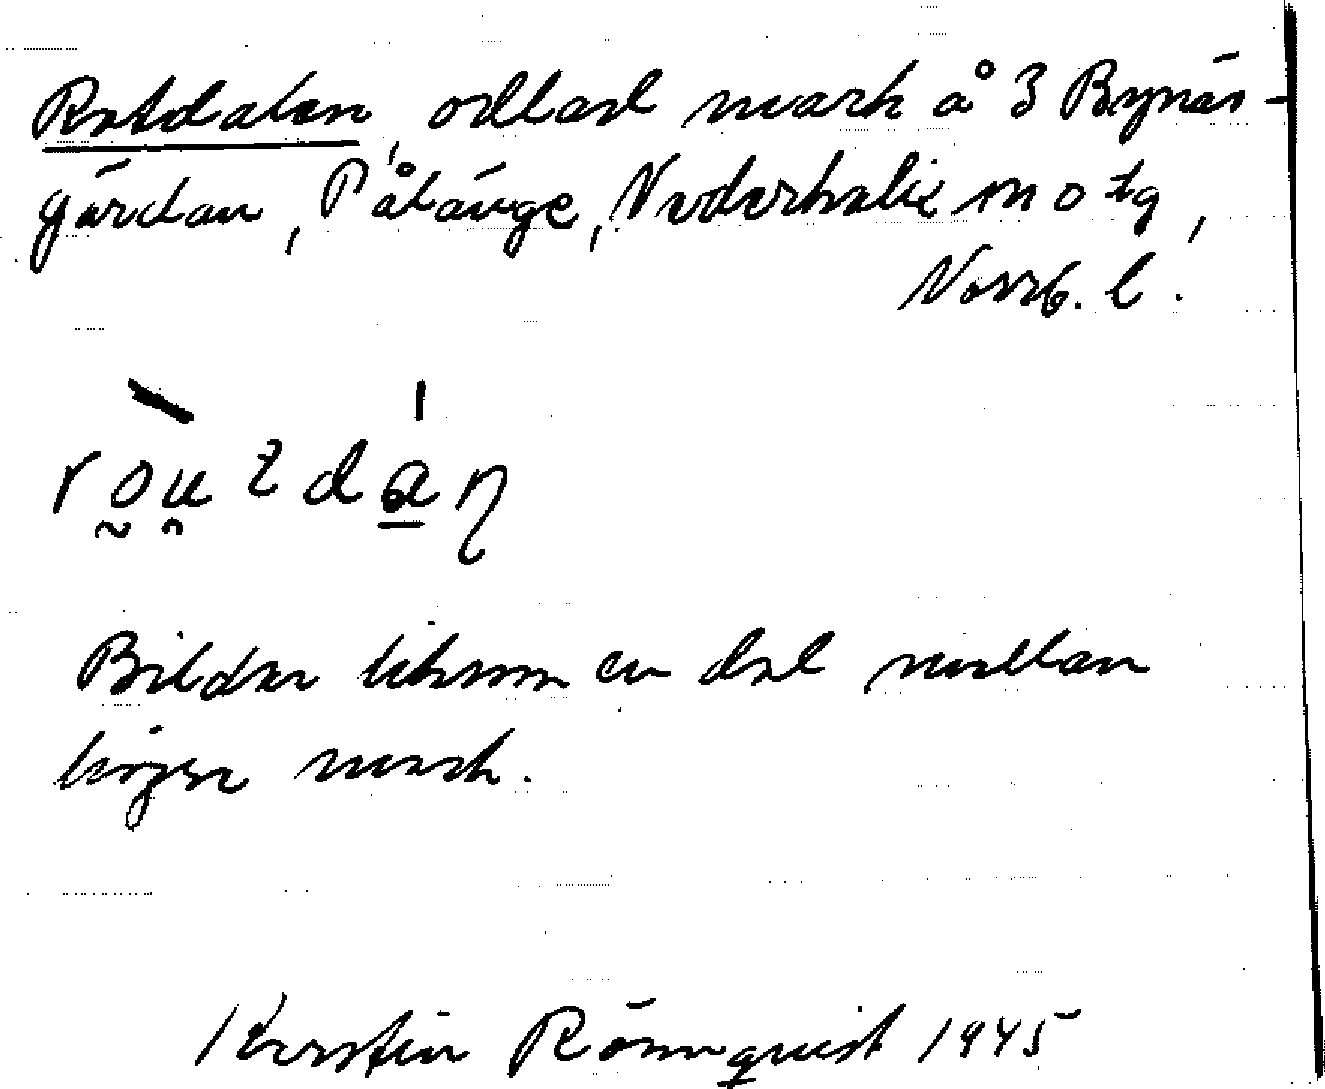 Rotdalen, odlad mark å 3 Bynäs-
gården, Pålänge, Nederkalix sn o tg,
Norrb. l.
ro̰u̯tda̱ɳ
Bildar liksom en dal mellan
högre mark.
Kerstin Rönnquist 1945